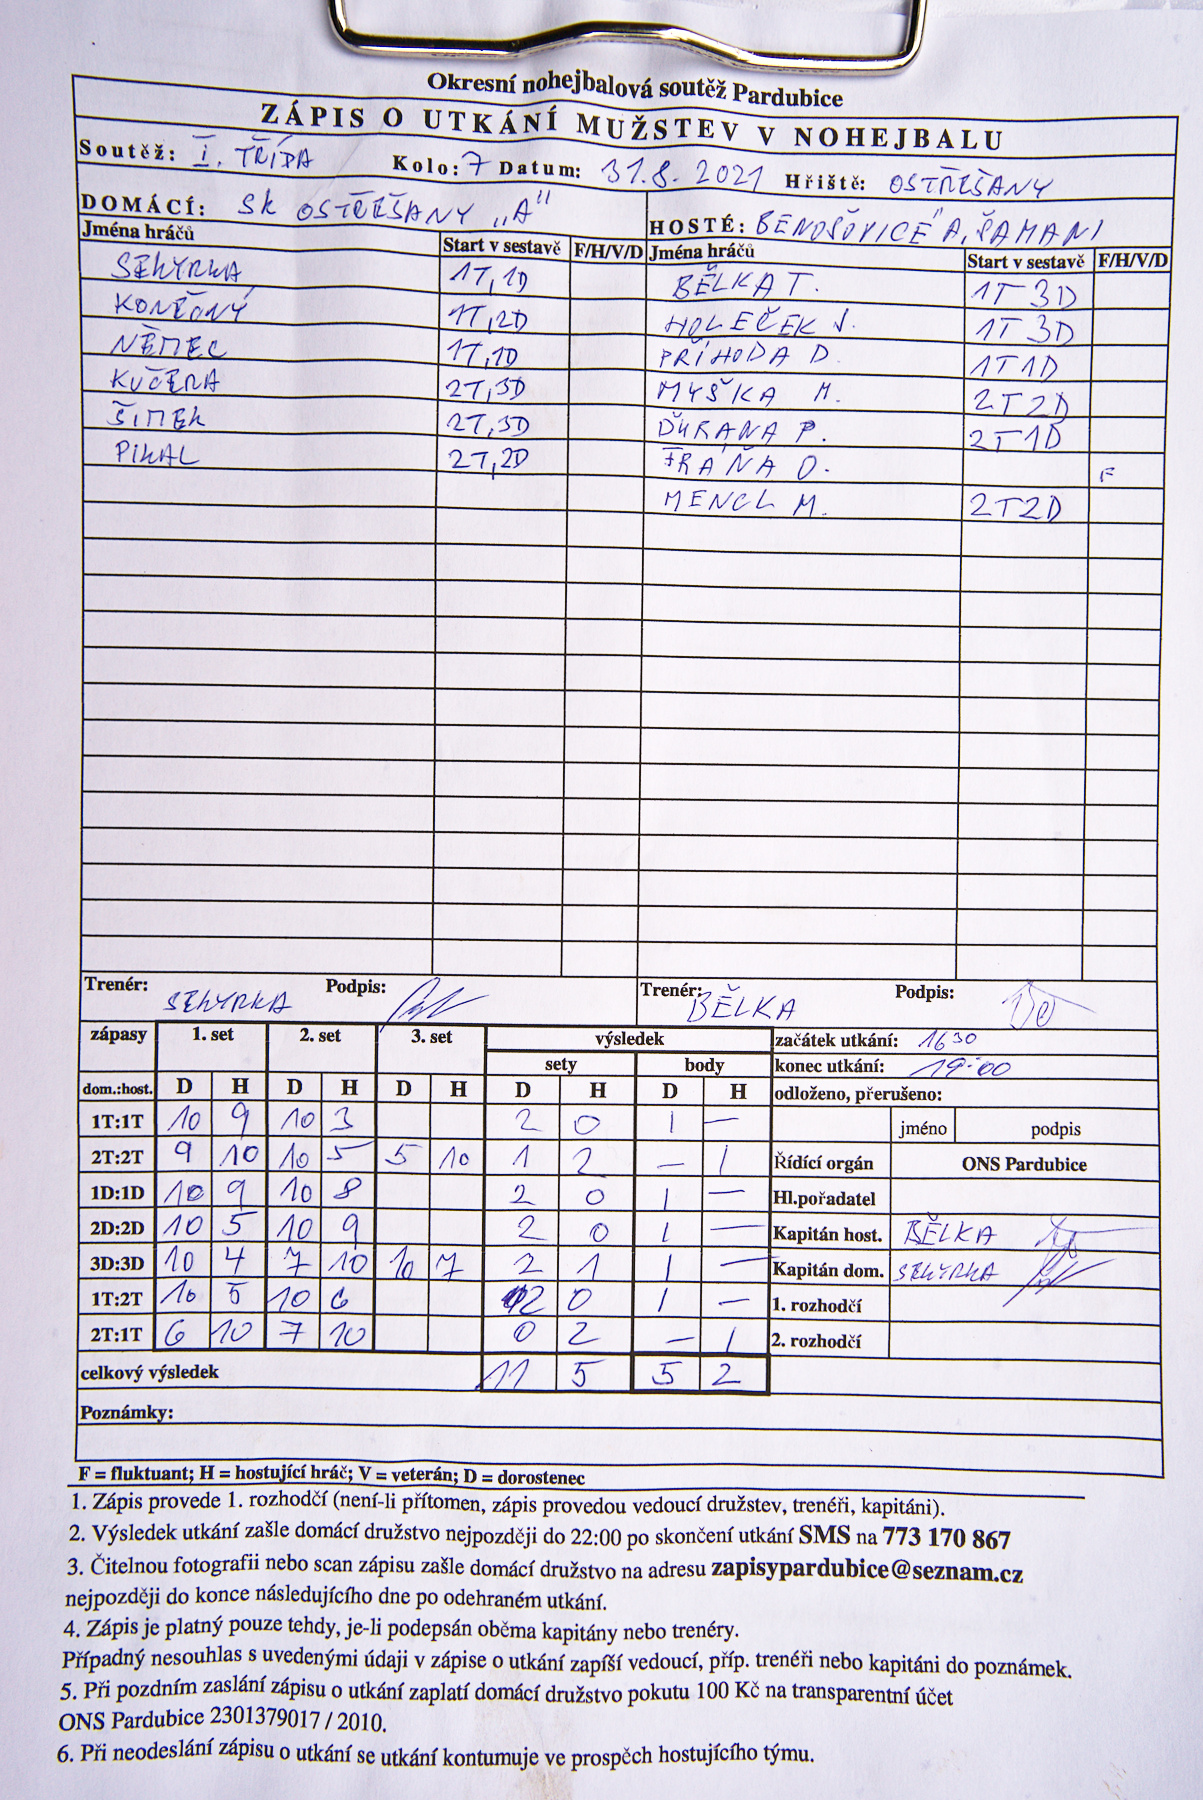 Okresní nohejbalová soutěž Pardubice
ZÁPIS O UTKÁNÍ MUŽSTEV V NOHEJBALU
Soutěž: I. TŘÍDA Kolo: 7 Datum: 31.8. 2021 Hřiště: OSTŘEŠANY
DOMÁCÍ: SK OSTŘEŠANY „A" HOSTÉ: A, ŠAMANI
Jména hráčů Start v sestavě F/H/V/D Jména hráčů Start v sestavě F/H/V/D
SEKYRKA 1T,1D BĚLKA T. 1T 3D
KONEČNÝ 1T,2D HOLEČEK J. 1T 3D
NĚMEC 1T,1D PŘÍHODA D. 1T1D
KUČERA 2T,3D MYŠKA M. 2T2D
ŠIMEK 2T,3D ĎURAŇA P. 2T1D
PIKAL 2T,2D FRÁŇA O. F
MENCL M. 2T2D
Trenér: SEKYRKA Podpis: Trenér: BĚLKA Podpis:
zápasy 1. set 2. set 3. set výsledek začátek utkání: 16 30
sety body konec utkání: 19:00
dom.:host. D H D H D H D H D H odloženo, přerušeno:
1T:1T 10 9 10 3 2 0 1 — jméno podpis
2T:2T 9 10 10 5 5 10 1 2 — 1 Řídící orgán ONS Pardubice
1D:1D 10 9 10 8 2 0 1 — Hl.pořadatel
2D:2D 10 5 10 9 2 0 1 — Kapitán host. BĚLKA
3D:3D 10 4 7 10 10 7 2 1 1 — Kapitán dom. SEKYRKA
1T:2T 10 5 10 6 2 0 1 — 1. rozhodčí
2T:1T 6 10 7 10 0 2 — 1 2. rozhodčí
celkový výsledek 11 5 5 2
Poznámky:
F = fluktuant; H = hostující hráč; V = veterán; D = dorostenec
1. Zápis provede 1. rozhodčí (není-li přítomen, zápis provedou vedoucí družstev, trenéři, kapitáni).
2. Výsledek utkání zašle domácí družstvo nejpozději do 22:00 po skončení utkání SMS na 773 170 867
3. Čitelnou fotografii nebo scan zápisu zašle domácí družstvo na adresu zapisypardubice@seznam.cz
nejpozději do konce následujícího dne po odehraném utkání.
4. Zápis je platný pouze tehdy, je-li podepsán oběma kapitány nebo trenéry.
Případný nesouhlas s uvedenými údaji v zápise o utkání zapíší vedoucí, příp. trenéři nebo kapitáni do poznámek.
5. Při pozdním zaslání zápisu o utkání zaplatí domácí družstvo pokutu 100 Kč na transparentní účet
ONS Pardubice 2301379017 / 2010.
6. Při neodeslání zápisu o utkání se utkání kontumuje ve prospěch hostujícího týmu.